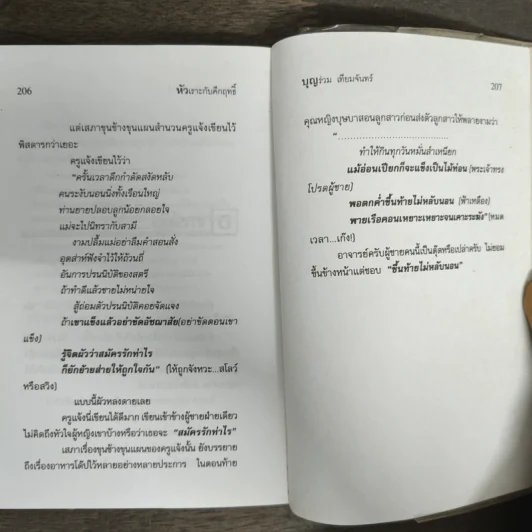 206
หัวเราะกับคึกฤทธิ์
แต่เสภาขุนช้างขุนแผนสำนวนครูแจ้งเขียนไว้
พิสดารกว่าเยอะ
ครูแจ้งเขียนไว้ว่า
"ครั้นเวลาดึกกำดัดสงัดหลับ
คนระงับนอนนิ่งทั้งเรือนใหญ่
ท่านยายปลอบลูกน้อยกลอยใจ
แม่จะไปนิทรากับสามี
งามปลื้มแม่อย่าลืมคำสอนสั่ง
อุตส่าห์ฟังจำไว้ให้ถ้วนถี่
อันการปรนนิบัติของสตรี
ถ้าทำดีแล้วชายไม่หน่ายใจ
สู้ถ่อมตัวปรนนิบัติคอยจัดแจง
ถ้าเขาแข็งแล้วอย่าขัดอัชฌาสัย(อย่าขัดตอนเขา
แข็ง)
รู้จิตผัวว่าสมัครรักท่าไร
ก็ยักย้ายส่ายให้ถูกใจกัน" (ให้ถูกจังหวะ...สโลว์
หรือสวิง)
แบบนี้ผัวหลงตายเลย
ครูแจ้งนี่เขียนได้ดีมาก เขียนเข้าข้างผู้ชายฝ่ายเดียว
ไม่คิดถึงหัวใจผู้หญิงเขาบ้างหรือว่าเธอจะ "สมัครรักท่าไร"
เสภาเรื่องขุนช้างขุนแผนของครูแจ้งนั้น ยังบรรยาย
ถึงเรื่องอาหารโด๊ปไว้หลายอย่างหลายประการ ในตอนท้าย
บุญร่วม เทียมจันทร์
207
คุณหญิงบุษบาสอนลูกสาวก่อนส่งตัวลูกสาวให้พลายงามว่า
"..............................
ทำให้กินทุกวันหมั่นสำเหนียก
แม้อ่อนเปียกก็จะแข็งเป็นไม้ท่อน (พระเจ้าทรง
โปรดผู้ชาย)
พอตกค่ำขึ้นท้ายไม่หลับนอน (ฟ้าเหลือง)
พายเรือคอนเหยาะเหยาะจนเคาะระฆัง" (หมด
เวลา...เก๊ง!)
อาจารย์ครับผู้ชายคนนี้เป็นตุ๊ดหรือเปล่าครับ ไม่ยอม
ขึ้นข้างหน้าแต่ชอบ "ขึ้นท้ายไม่หลับนอน"